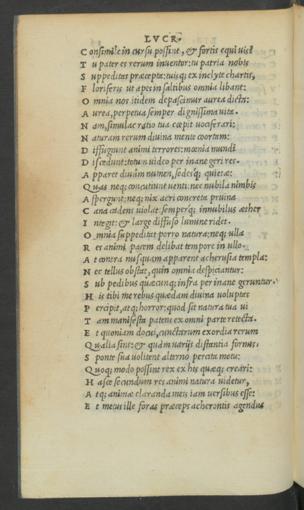 LVCR.
Consimile in cursu possint, & fortis equi uis?
Tu pater es rerum inuentor: tu patria nobis
Suppeditas præcepta: tuisq; ex inclyte chartis,
Floriferis ut apes in saltibus omnia libant:
Omnia nos itidem depascimur aurea dicta:
Aurea, perpetua semper dignissima uita.
Nam, simulac ratio tua cœpit uociferari:
Naturam rerum diuina mente coortam:
Diffugunt animi terrores: mœnia mundi
Discedunt: totum uideo per inane geri res.
Apparet diuûm numen, sedesq; quietæ:
Quas neq; concutiunt uenti: nec nubila nimbis
Aspergunt: neq; nix acri concreta pruina
Cana cadens uiolat: semperq; innubilus æther
Integit: & large diffuso lumine ridet.
Omnia suppeditat porro natura: neq; ulla
Res animi pacem delibat tempore in ullo.
At contra nusquam apparent acherusia templa:
Nec tellus obstat, quin omnia despiciantur:
Sub pedibus quæcunq; infra per inane geruntur.
His tibi me rebus quædam diuina uoluptas
Percipit, atq; horror: quod sit natura tua ui
Tam manifesta patens ex omni parte retecta.
Et quoniam docui, cunctarum exordia rerum
Qualia sint: & quàm uarijs distantia formis,
Sponte sua uolitent alterno percita motu:
Quoq; modo possint rex ex his quæq; creari:
Hasce secundum res animi natura uidetur,
Atq; animæ claranda meis iam uersibus esse:
Et metus ille foras præceps acherontis agendus